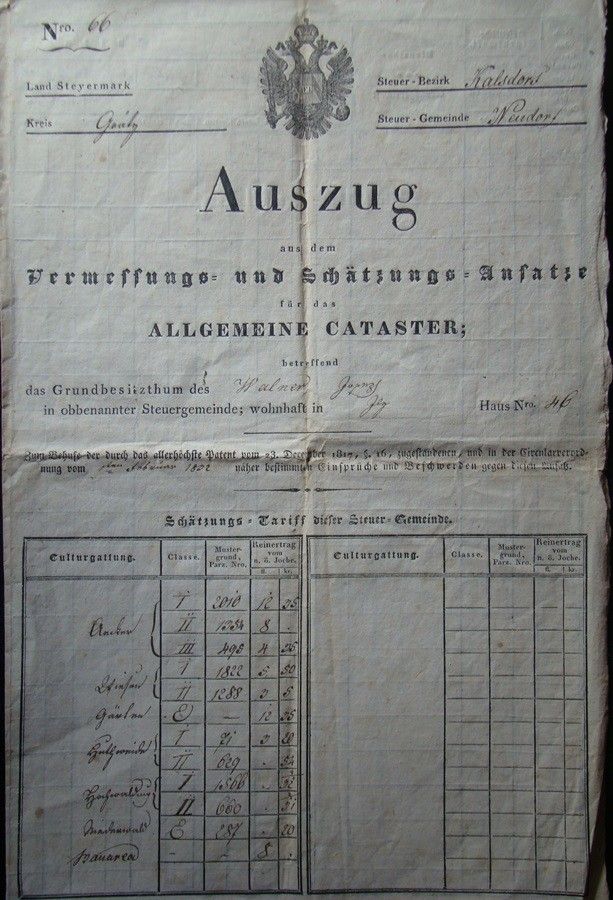 Nro. 66
Land Steyermark
Kreis Grätz
Steuer-Bezirk Kalsdorf
Steuer-Gemeinde Neudorf
Auszug
aus dem
Vermessungs- und Schätzungs-Ansatze
für das
ALLGEMEINE CATASTER;
betreffend
das Grundbesitzthum des Walner
in obbenannter Steuergemeinde; wohnhaft in Haus Nro. 46
Zum Behufe der durch das allerhöchste Patent vom 23. December 1817, §. 16, zugestandenen, und in der Circularverord-
nung vom Februar 1822 näher bestimmten Einsprüche und Beschwerden gegen diesen Ansatz.
Schätzungs-Tariff dieser Steuer-Gemeinde.
Culturgattung. Classe. Mustergrund, Parz. Nro. Reinertrag vom n. ö. Joche. fl. kr. Culturgattung. Classe. Mustergrund, Parz. Nro. Reinertrag vom n. ö. Joche. fl. kr.
Aecker I 2010 12 35
II 1354 8 .
III 495 4 35
Wiesen I 1822 5 50
II 1288 3 5
Gärten E — 12 35
Huthweide I 71 3 50
II 629 .
Hochwaldung I 1566 . 52
II 660 . 51
Niederwald E 287 . 20
Bauarea - - 8 .